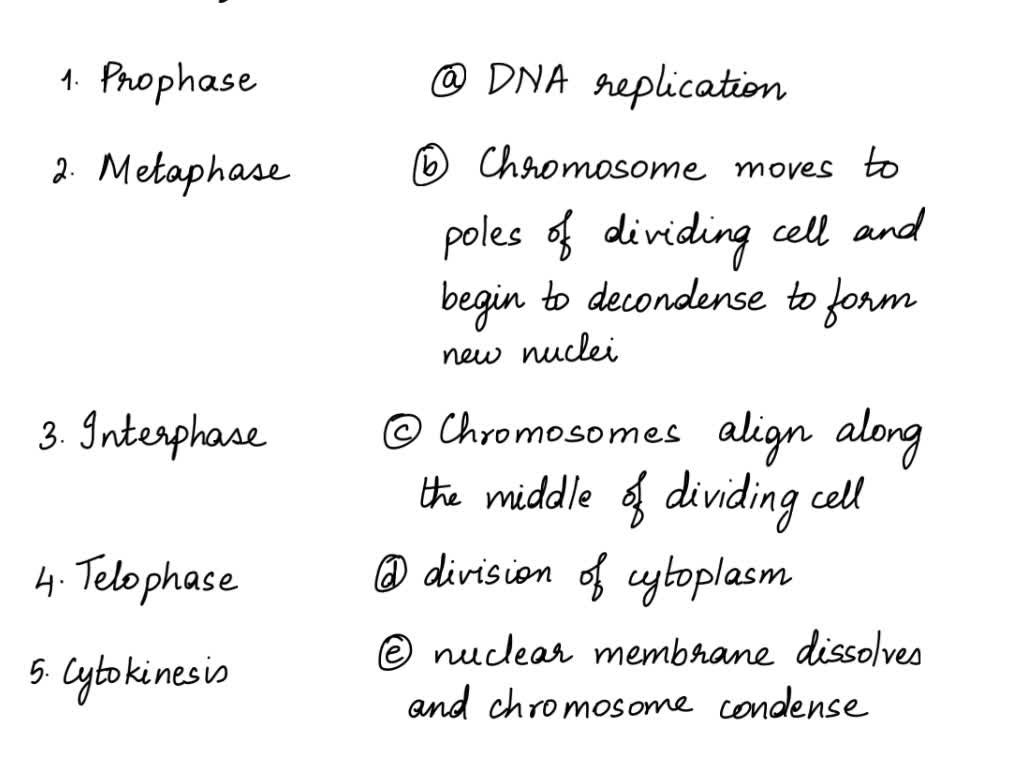 1. Prophase ⓐ DNA replication
2. Metaphase ⓑ Chromosome moves to
poles of dividing cell and
begin to decondense to form
new nuclei
3. Interphase ⓒ Chromosomes align along
the middle of dividing cell
4. Telophase ⓓ division of cytoplasm
5. Cytokinesis ⓔ nuclear membrane dissolves
and chromosome condense